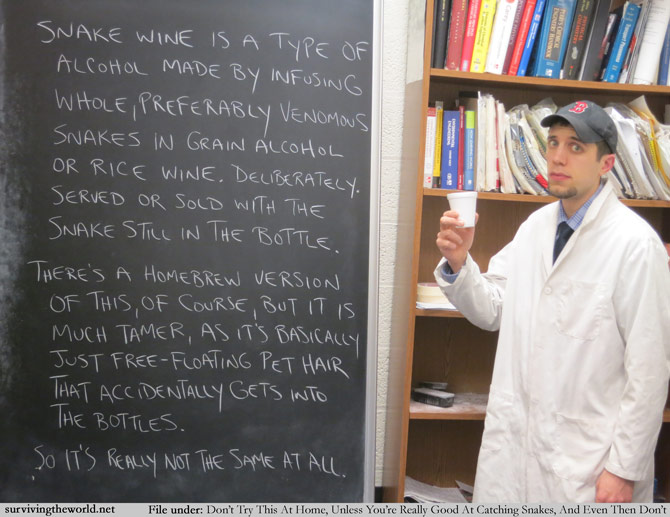 SNAKE WINE IS A TYPE OF
ALCOHOL MADE BY INFUSING
WHOLE, PREFERABLY VENOMOUS
SNAKES IN GRAIN ALCOHOL
OR RICE WINE. DELIBERATELY.
SERVED OR SOLD WITH THE
SNAKE STILL IN THE BOTTLE.
THERE'S A HOMEBREW VERSION
OF THIS, OF COURSE, BUT IT IS
MUCH TAMER, AS IT'S BASICALLY
JUST FREE-FLOATING PET HAIR
THAT ACCIDENTALLY GETS INTO
THE BOTTLES.
SO IT'S REALLY NOT THE SAME AT ALL.
B
survivingtheworld.net File under: Don't Try This At Home, Unless You're Really Good At Catching Snakes, And Even Then Don't